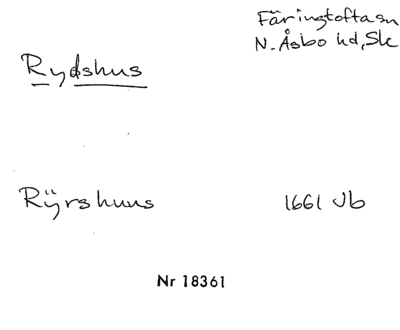 Färingtofta sn
N. Åsbo hd, Sk
Rydshus
Rÿrshuus
1661 Jb
Nr 18361